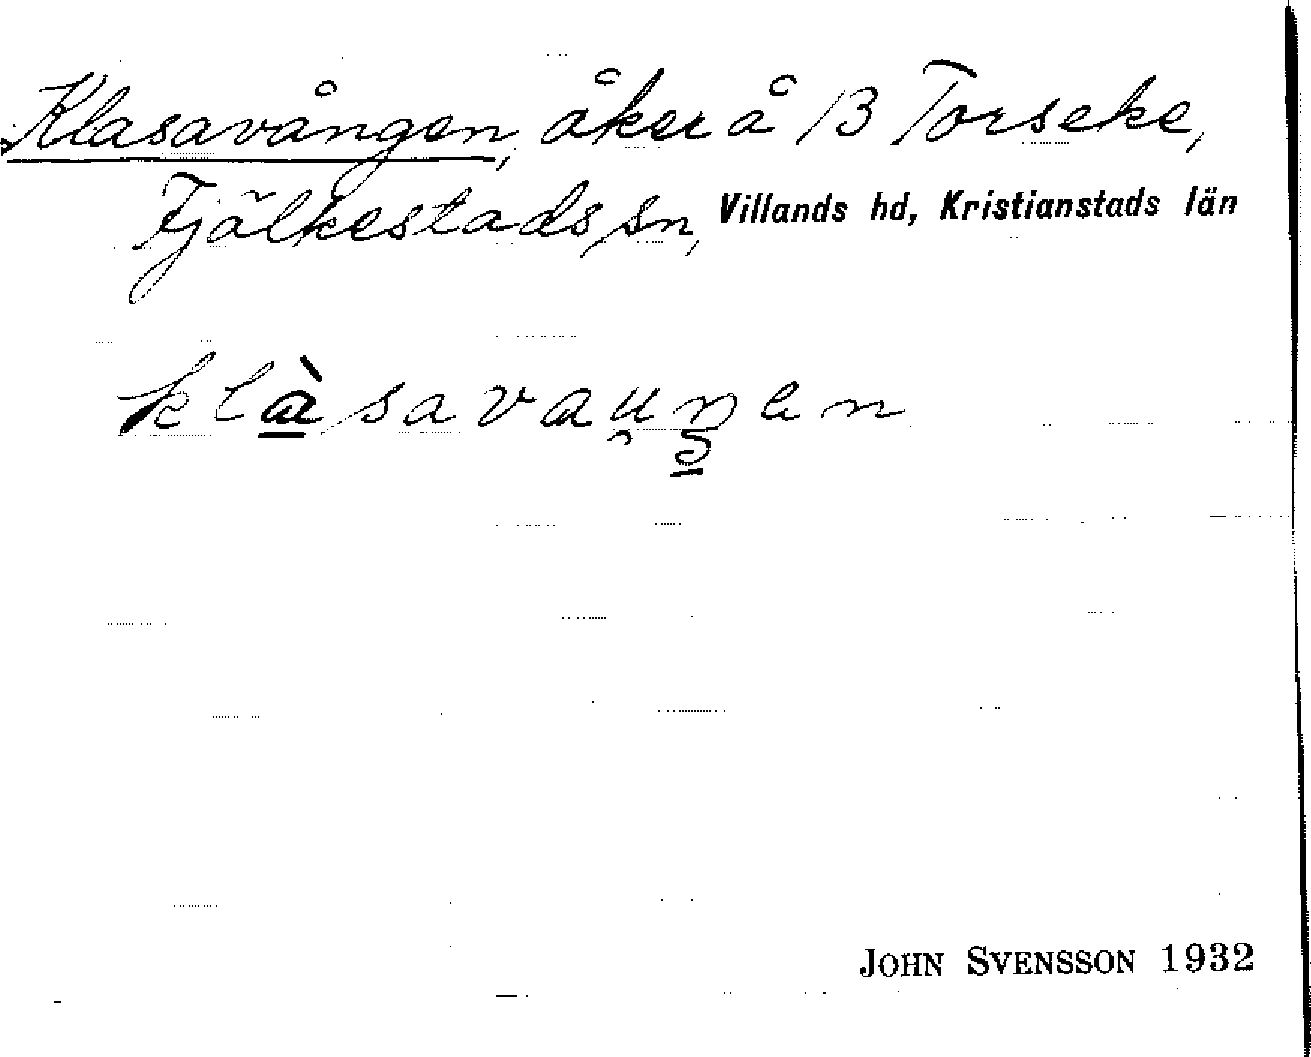 Klasavången, åker å 13 Torseke,
Fjälkestads sn, Villands hd, Kristianstads län
klàsavauŋen
JOHN SVENSSON 1932